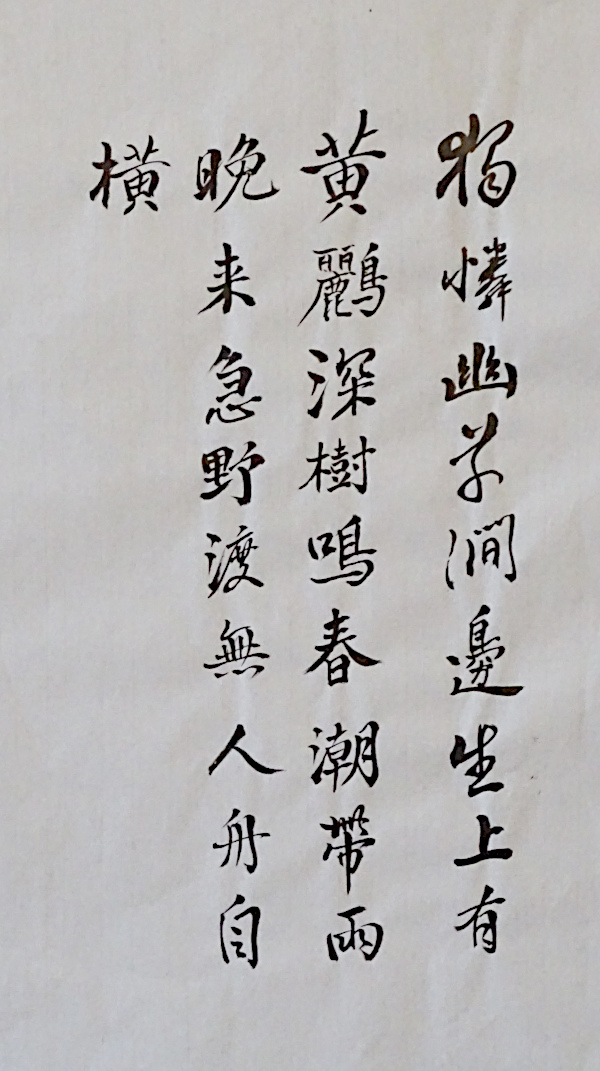 獨憐幽草澗邊生上有
黄鸝深樹鳴春潮帶雨
晚来急野渡無人舟自
橫